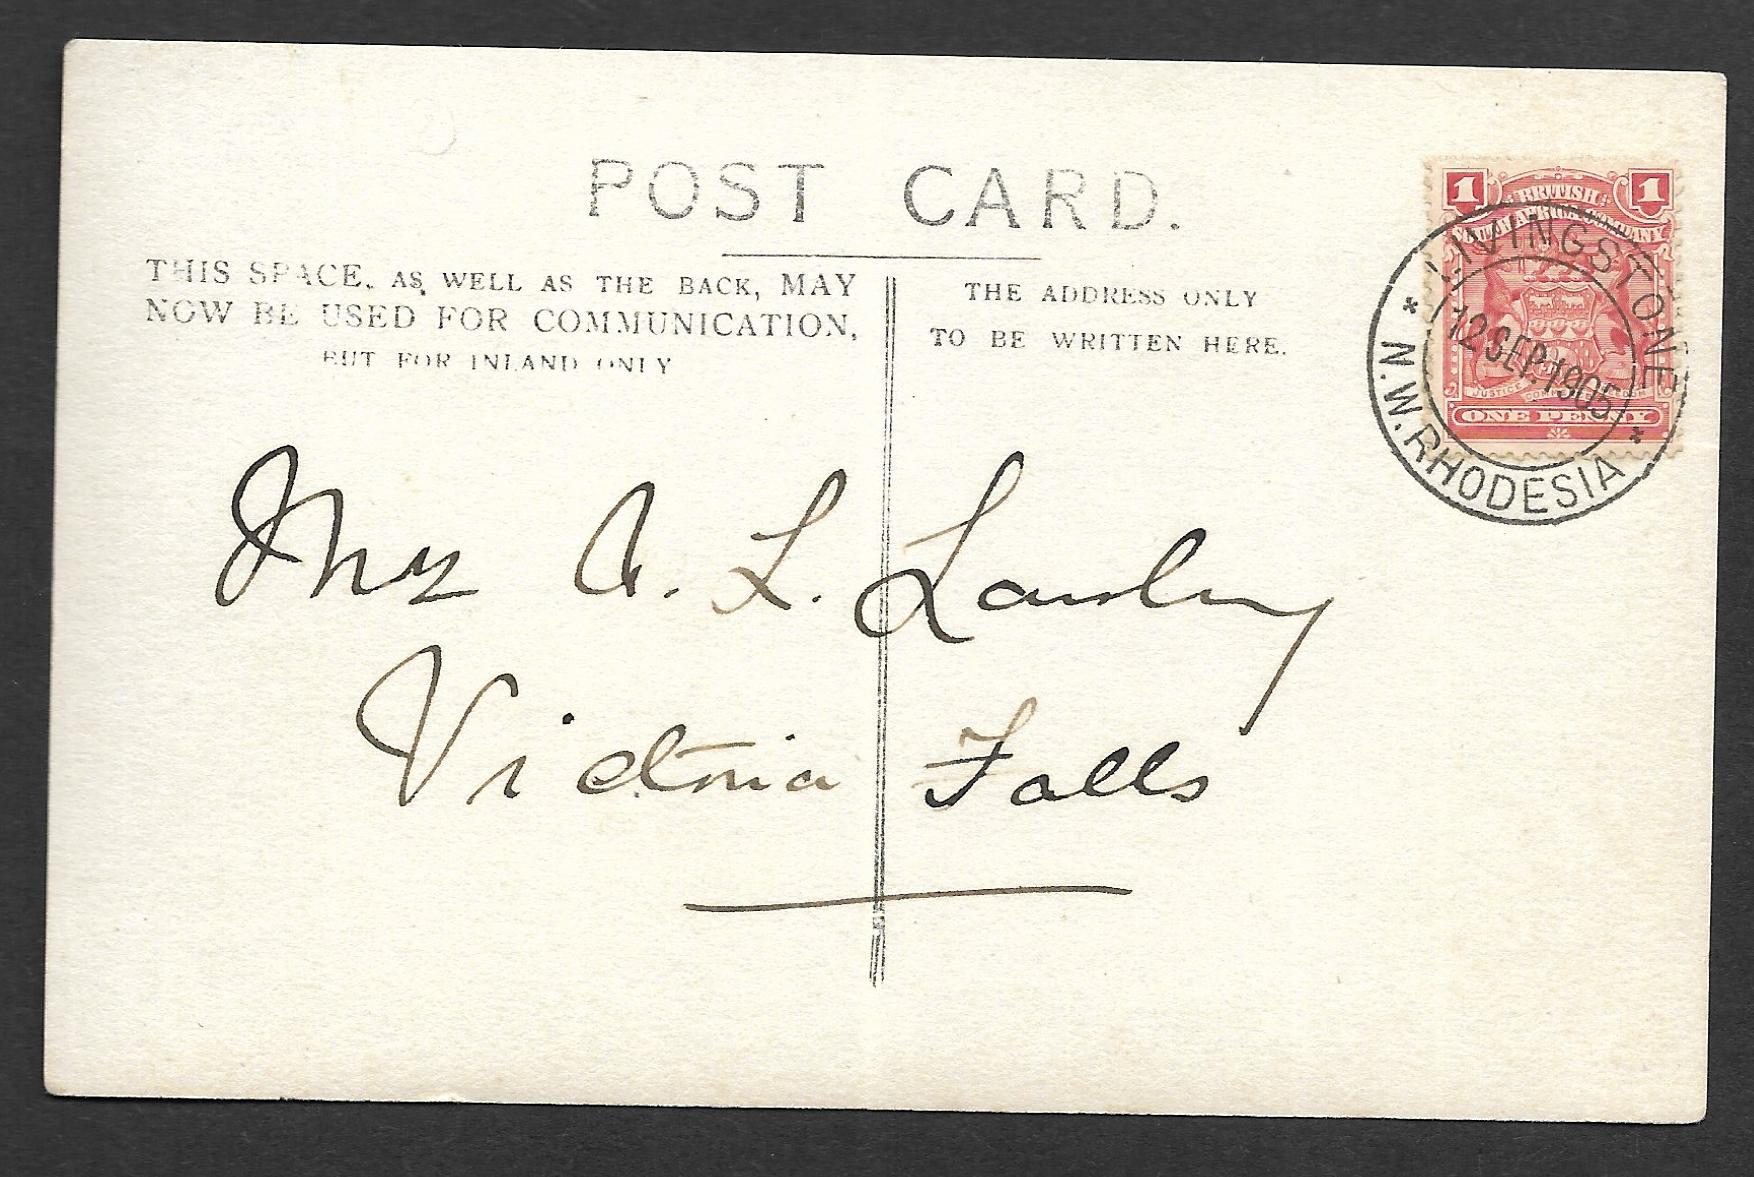 POST CARD.
THIS SPACE, AS WELL AS THE BACK, MAY
NOW BE USED FOR COMMUNICATION,
BUT FOR INLAND ONLY
THE ADDRESS ONLY
TO BE WRITTEN HERE.
1 1
BRITISH
SOUTH AFRICA COMPANY
JUSTICE COMMERCE FREEDOM
ONE PENNY
LIVINGSTONE
12 SEP. 1905
* N.W. RHODESIA *
A. L. Lawley
Victoria Falls